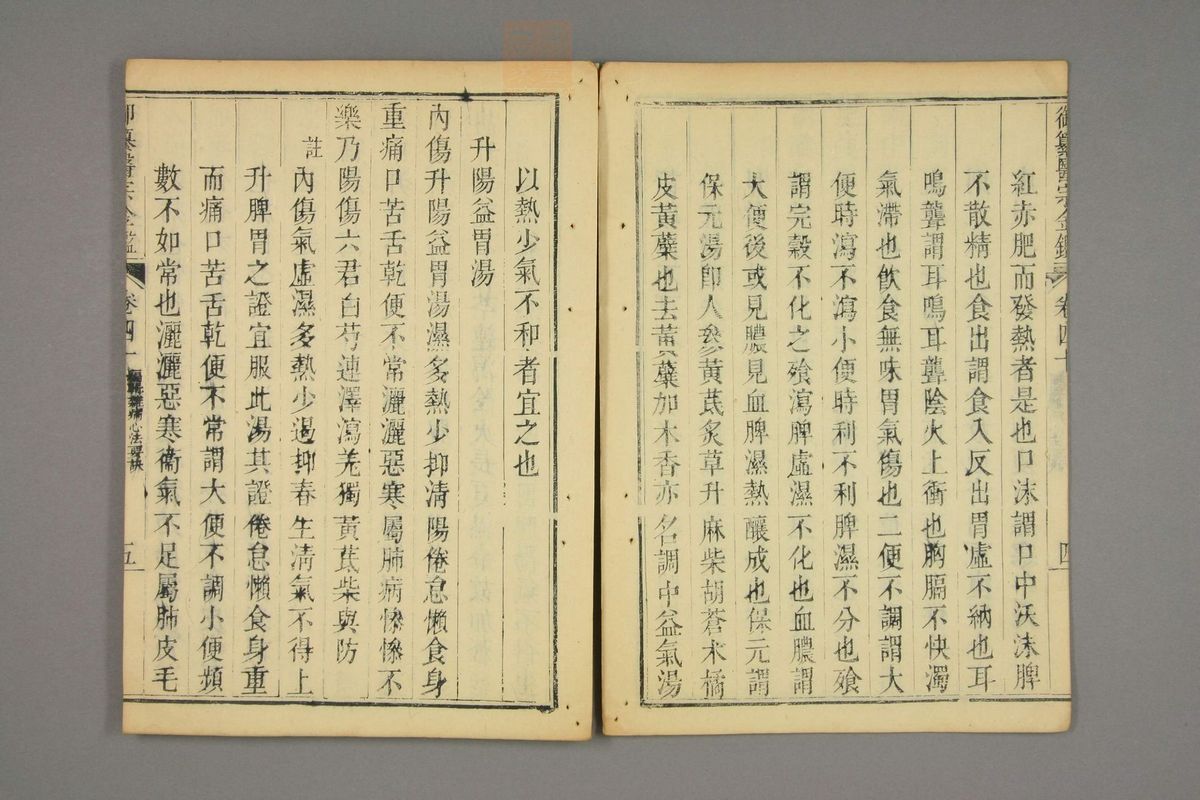 御纂醫宗金鑑 卷四十 四
紅赤肥而發熱者是也口沫謂口中沃沫脾
不散精也食出謂食入反出胃虛不納也耳
鳴聾謂耳鳴耳聾陰火上衝也胸膈不快濁
氣滯也飲食無味胃氣傷也二便不調謂大
便時瀉不瀉小便時利不利脾濕不分也飧
謂完穀不化之飧瀉脾虛濕不化也血膿謂
大便後或見膿見血脾濕熱釀成也保元謂
保元湯卽人參黃茋炙草升麻柴胡蒼朮橘
皮黃蘗也去黃蘗加木香亦名調中益氣湯
以熱少氣不和者宜之也
升陽益胃湯
內傷升陽益胃湯濕多熱少抑淸陽倦怠懶食身
重痛口苦舌乾便不常灑灑惡寒屬肺病慘慘不
樂乃陽傷六君白芍連澤瀉羌獨黃茋柴與防
註內傷氣虛濕多熱少遏抑春生淸氣不得上
升脾胃之證宜服此湯其證倦怠懶食身重
而痛口苦舌乾便不常謂大便不調小便頻
數不如常也灑灑惡寒衛氣不足屬肺皮毛
御纂醫宗金鑑 卷四十 編輯雜病心法要訣 五